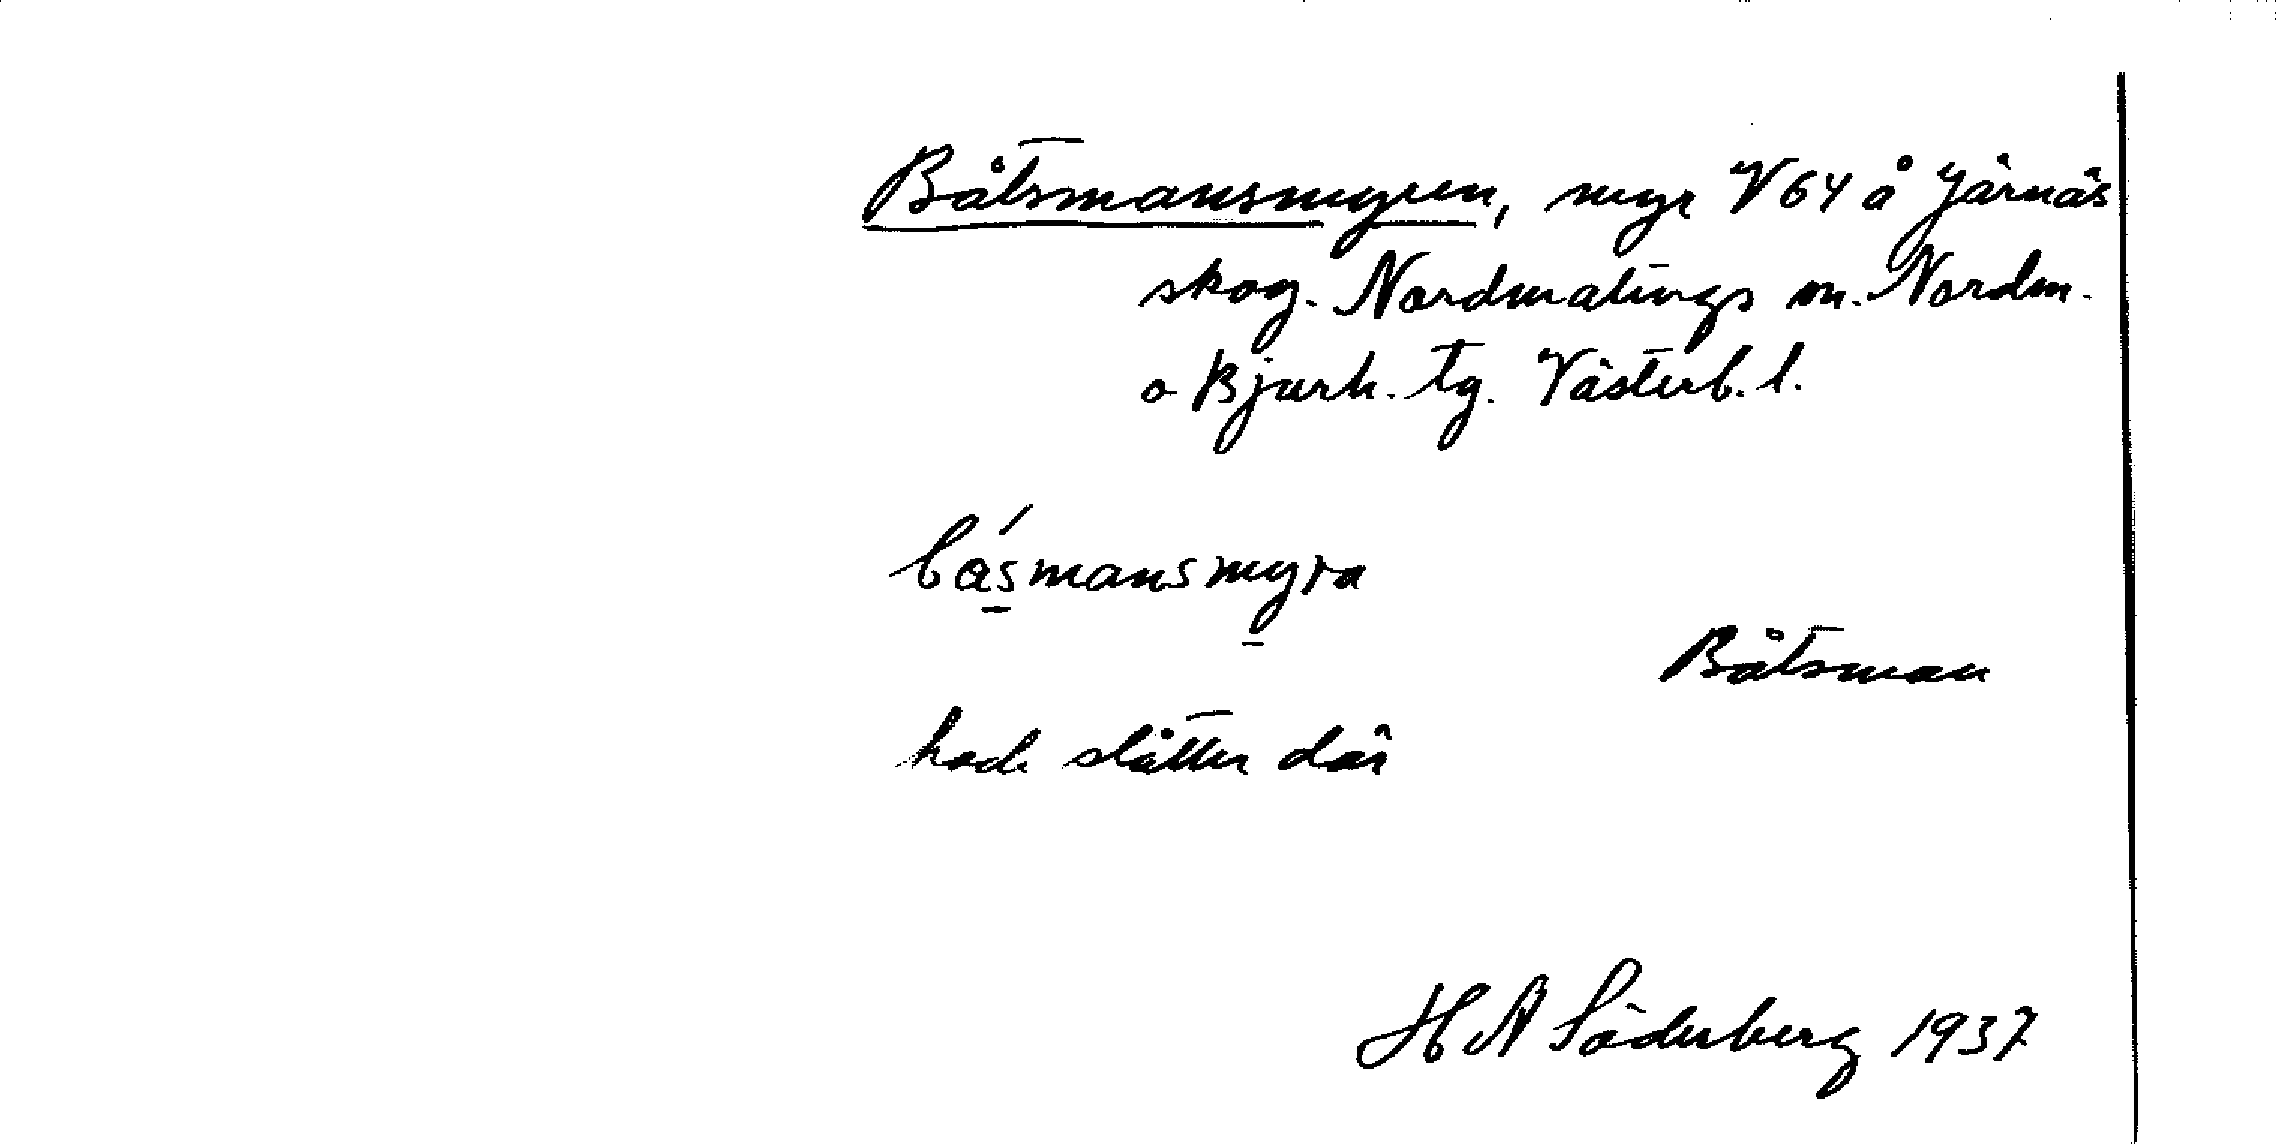 Båtsmansmyren, myr V64 å Järnäs
skog. Nordmalings sn. Nordm.
o Bjurh. tg. Västerb. l.
básmansmyra
Båtsman
hade slåtter där
H A Söderberg 1937